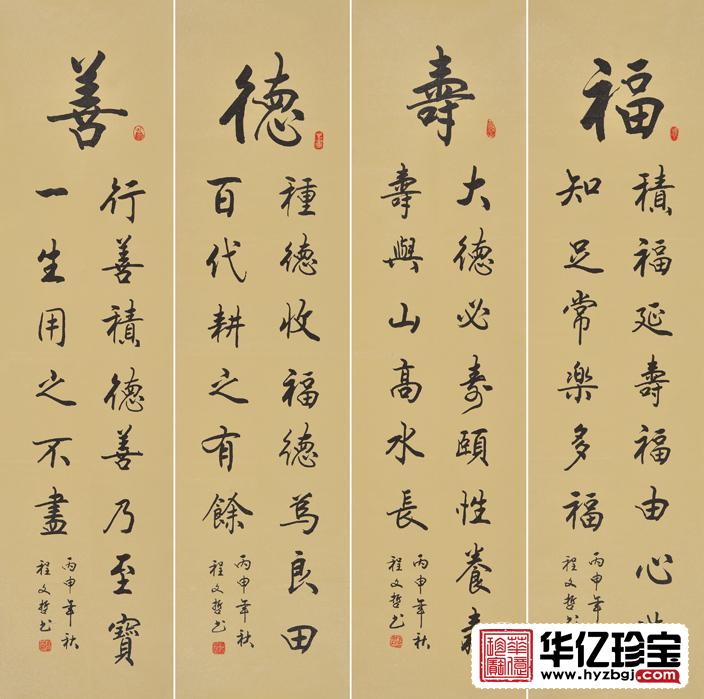 福
積福延壽福由心
知足常樂多福
丙申年
程文哲书
壽
大德必寿頤性養
壽與山高水長
丙申年秋
程文哲书
德
種德收福德為良田
百代耕之有餘
丙申年秋
程文哲书
善
行善積德善乃至寶
一生用之不盡
丙申年秋
程文哲书
华亿珍宝
www.hyzbgj.com